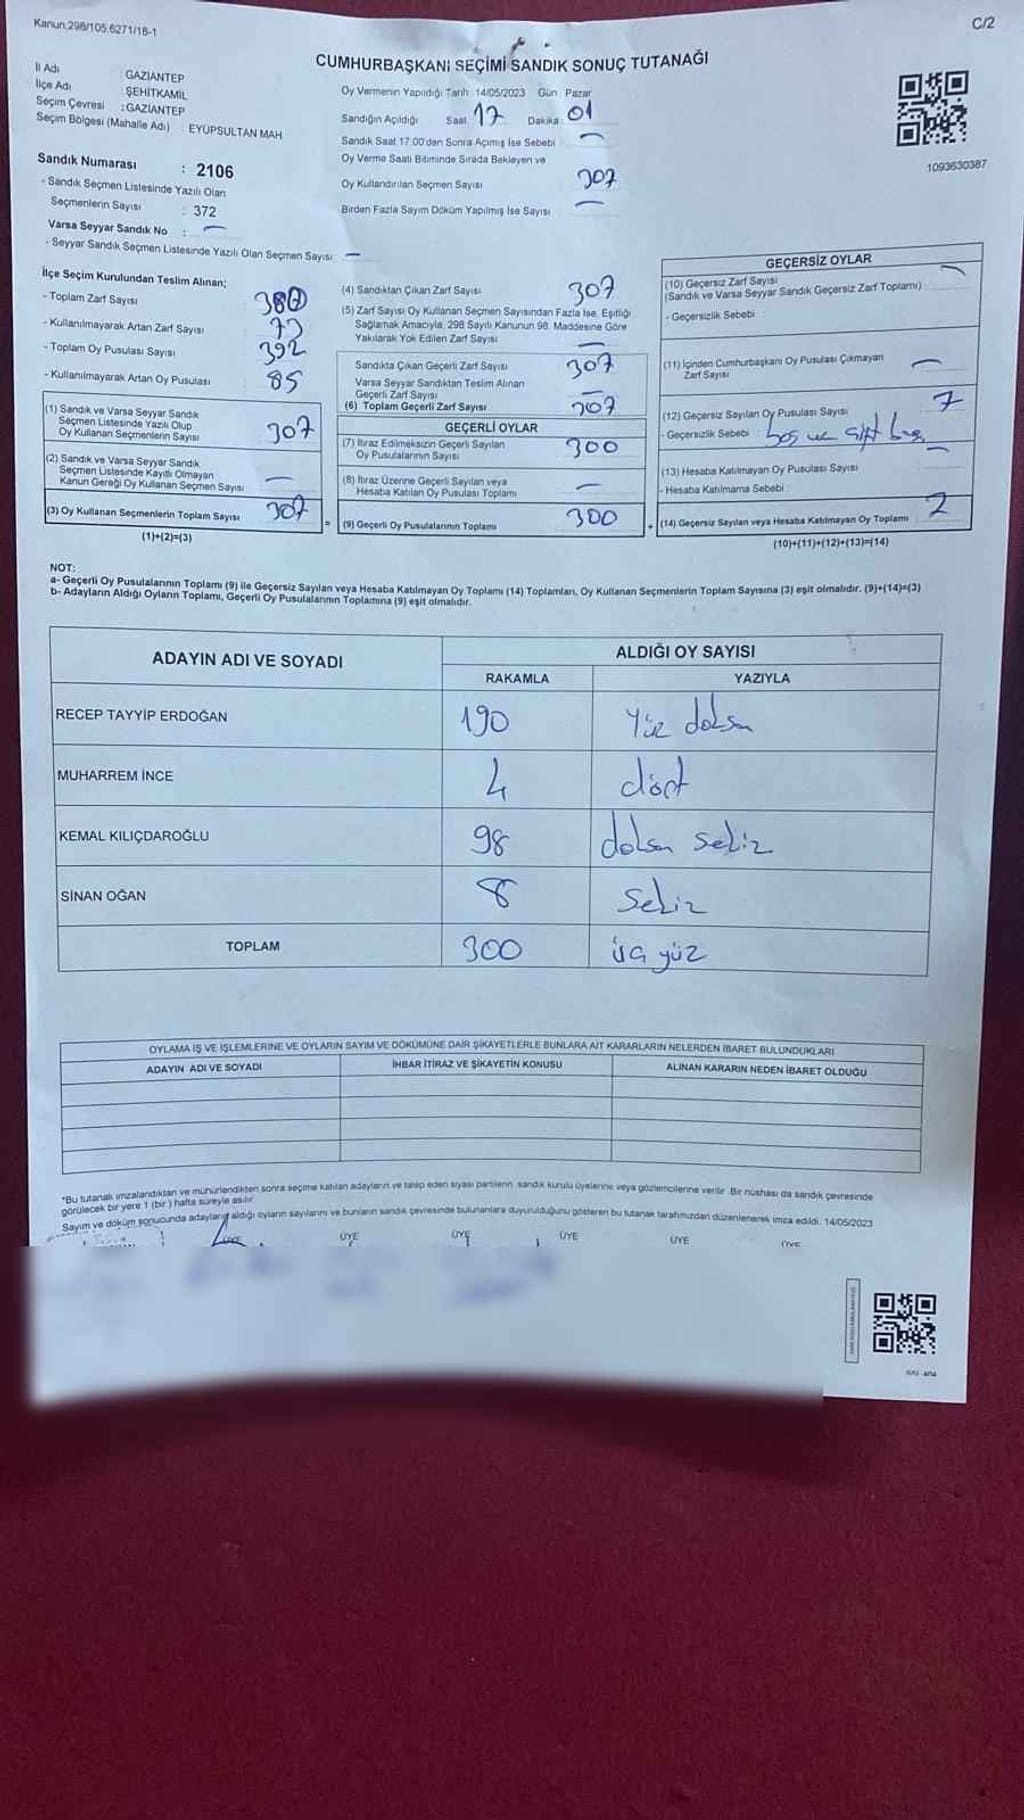 Kanun;298/105;6271/18-1
C/2
CUMHURBAŞKANI SEÇİMİ SANDIK SONUÇ TUTANAĞI
İl Adı : GAZİANTEP
İlçe Adı : ŞEHİTKAMİL
Seçim Çevresi : GAZİANTEP
Seçim Bölgesi (Mahalle Adı) : EYÜPSULTAN MAH
Sandık Numarası : 2106
- Sandık Seçmen Listesinde Yazılı Olan
Seçmenlerin Sayısı : 372
Varsa Seyyar Sandık No : —
- Seyyar Sandık Seçmen Listesinde Yazılı Olan Seçmen Sayısı: —
Oy Vermenin Yapıldığı Tarih : 14/05/2023 Gün : Pazar
Sandığın Açıldığı Saat 17 Dakika : 01
Sandık Saat 17:00'den Sonra Açımış İse Sebebi —
Oy Verme Saati Bitiminde Sırada Bekleyen ve
Oy Kullandırılan Seçmen Sayısı 307
Birden Fazla Sayım Döküm Yapılmış İse Sayısı —
1093630387
İlçe Seçim Kurulundan Teslim Alınan;
- Toplam Zarf Sayısı 380
- Kullanılmayarak Artan Zarf Sayısı 73
- Toplam Oy Pusulası Sayısı 392
- Kullanılmayarak Artan Oy Pusulası 85
(1) Sandık ve Varsa Seyyar Sandık
Seçmen Listesinde Yazılı Olup
Oy Kullanan Seçmenlerin Sayısı 307
(2) Sandık ve Varsa Seyyar Sandık
Seçmen Listesinde Kayıtlı Olmayan
Kanun Gereği Oy Kullanan Seçmen Sayısı —
(3) Oy Kullanan Seçmenlerin Toplam Sayısı 307
(1)+(2)=(3)
(4) Sandıktan Çıkan Zarf Sayısı 307
(5) Zarf Sayısı Oy Kullanan Seçmen Sayısından Fazla İse, Eşitliği
Sağlamak Amacıyla, 298 Sayılı Kanunun 98. Maddesine Göre
Yakılarak Yok Edilen Zarf Sayısı —
Sandıkta Çıkan Geçerli Zarf Sayısı 307
Varsa Seyyar Sandıktan Teslim Alınan
Geçerli Zarf Sayısı —
(6) Toplam Geçerli Zarf Sayısı 307
GEÇERLİ OYLAR
(7) İtiraz Edilmeksizin Geçerli Sayılan
Oy Pusulalarının Sayısı 300
(8) İtiraz Üzerine Geçerli Sayılan veya
Hesaba Katılan Oy Pusulası Toplamı —
= (9) Geçerli Oy Pusulalarının Toplamı 300
GEÇERSİZ OYLAR
(10) Geçersiz Zarf Sayısı
(Sandık ve Varsa Seyyar Sandık Geçersiz Zarf Toplamı) : —
- Geçersizlik Sebebi :
(11) İçinden Cumhurbaşkanı Oy Pusulası Çıkmayan
Zarf Sayısı —
(12) Geçersiz Sayılan Oy Pusulası Sayısı 7
- Geçersizlik Sebebi : boş ve çift
(13) Hesaba Katılmayan Oy Pusulası Sayısı —
- Hesaba Katılmama Sebebi :
+ (14) Geçersiz Sayılan veya Hesaba Katılmayan Oy Toplamı 7
(10)+(11)+(12)+(13)=(14)
NOT:
a- Geçerli Oy Pusulalarının Toplamı (9) ile Geçersiz Sayılan veya Hesaba Katılmayan Oy Toplamı (14) Toplamları, Oy Kullanan Seçmenlerin Toplam Sayısına (3) eşit olmalıdır. (9)+(14)=(3)
b- Adayların Aldığı Oyların Toplamı, Geçerli Oy Pusulalarının Toplamına (9) eşit olmalıdır.
ADAYIN ADI VE SOYADI ALDIĞI OY SAYISI
RAKAMLA YAZIYLA
RECEP TAYYİP ERDOĞAN 190 Yüz doksan
MUHARREM İNCE 4 dört
KEMAL KILIÇDAROĞLU 98 doksan sekiz
SİNAN OĞAN 8 sekiz
TOPLAM 300 üç yüz
OYLAMA İŞ VE İŞLEMLERİNE VE OYLARIN SAYIM VE DÖKÜMÜNE DAİR ŞİKAYETLERLE BUNLARA AİT KARARLARIN NELERDEN İBARET BULUNDUKLARI
ADAYIN ADI VE SOYADI İHBAR İTİRAZ VE ŞİKAYETİN KONUSU ALINAN KARARIN NEDEN İBARET OLDUĞU
*Bu tutanak imzalandıktan ve mühürlendikten sonra seçime katılan adayların ve talep eden siyasi partilerin sandık kurulu üyelerine veya gözlemcilerine verilir. Bir nüshası da sandık çevresinde
görülecek bir yere 1 (bir) hafta süreyle asılır.
Sayım ve döküm sonucunda adayların aldığı oyların sayılarını ve bunların sandık çevresinde bulunanlara duyurulduğunu gösteren bu tutanak tarafımızdan düzenlenerek imza edildi. 14/05/2023
ÜYE ÜYE ÜYE ÜYE ÜYE